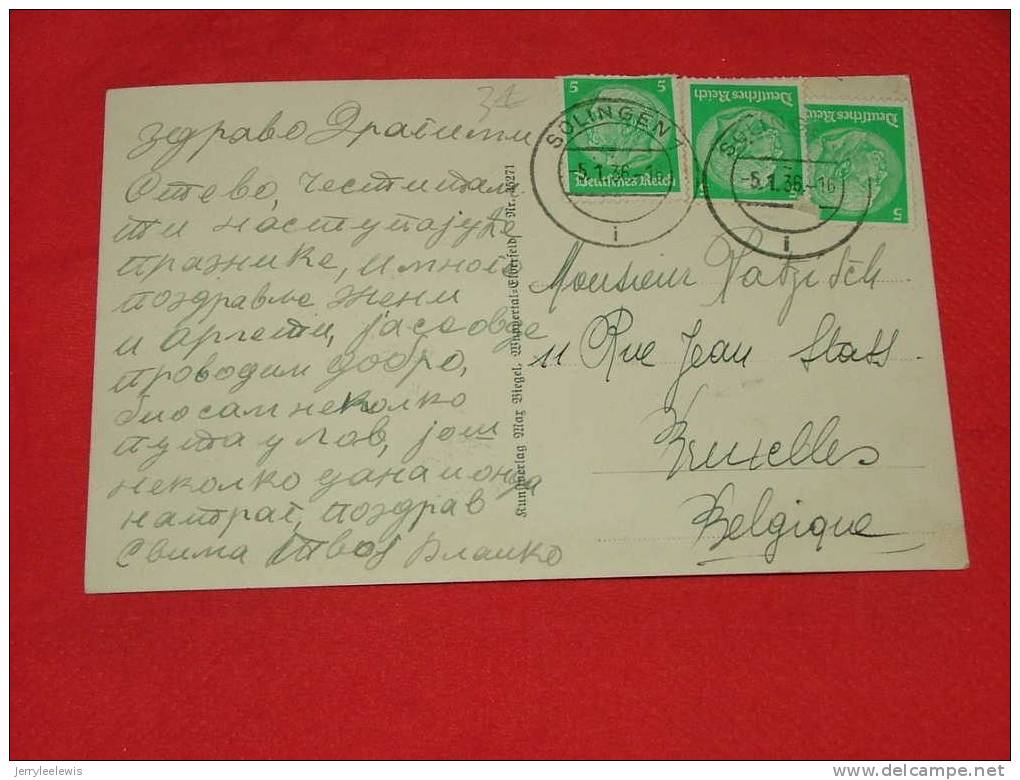 здраво Драги
Стево, Честитам
ти наступајуће
празнике, и много
поздравље Жени
и Аргети, ја се овде
проводим добро,
био сам неколко
пута у лов, још
неколко дана и онда
натраг, поздрав
Свима Твој Влаико
Kunstverlag Max Biegel, Wuppertal-Elberfeld Nr. 46271
5 5
SOLINGEN 1
-5.1.36.-
Deutsches Reich
i
Deutsches Reich
5
-5.1.36.-16
i
Deutsches Reich
5
Monsieur
11 Rue Jean Stass
Bruxelles
Belgique
jerryleelewis
delcampe.net